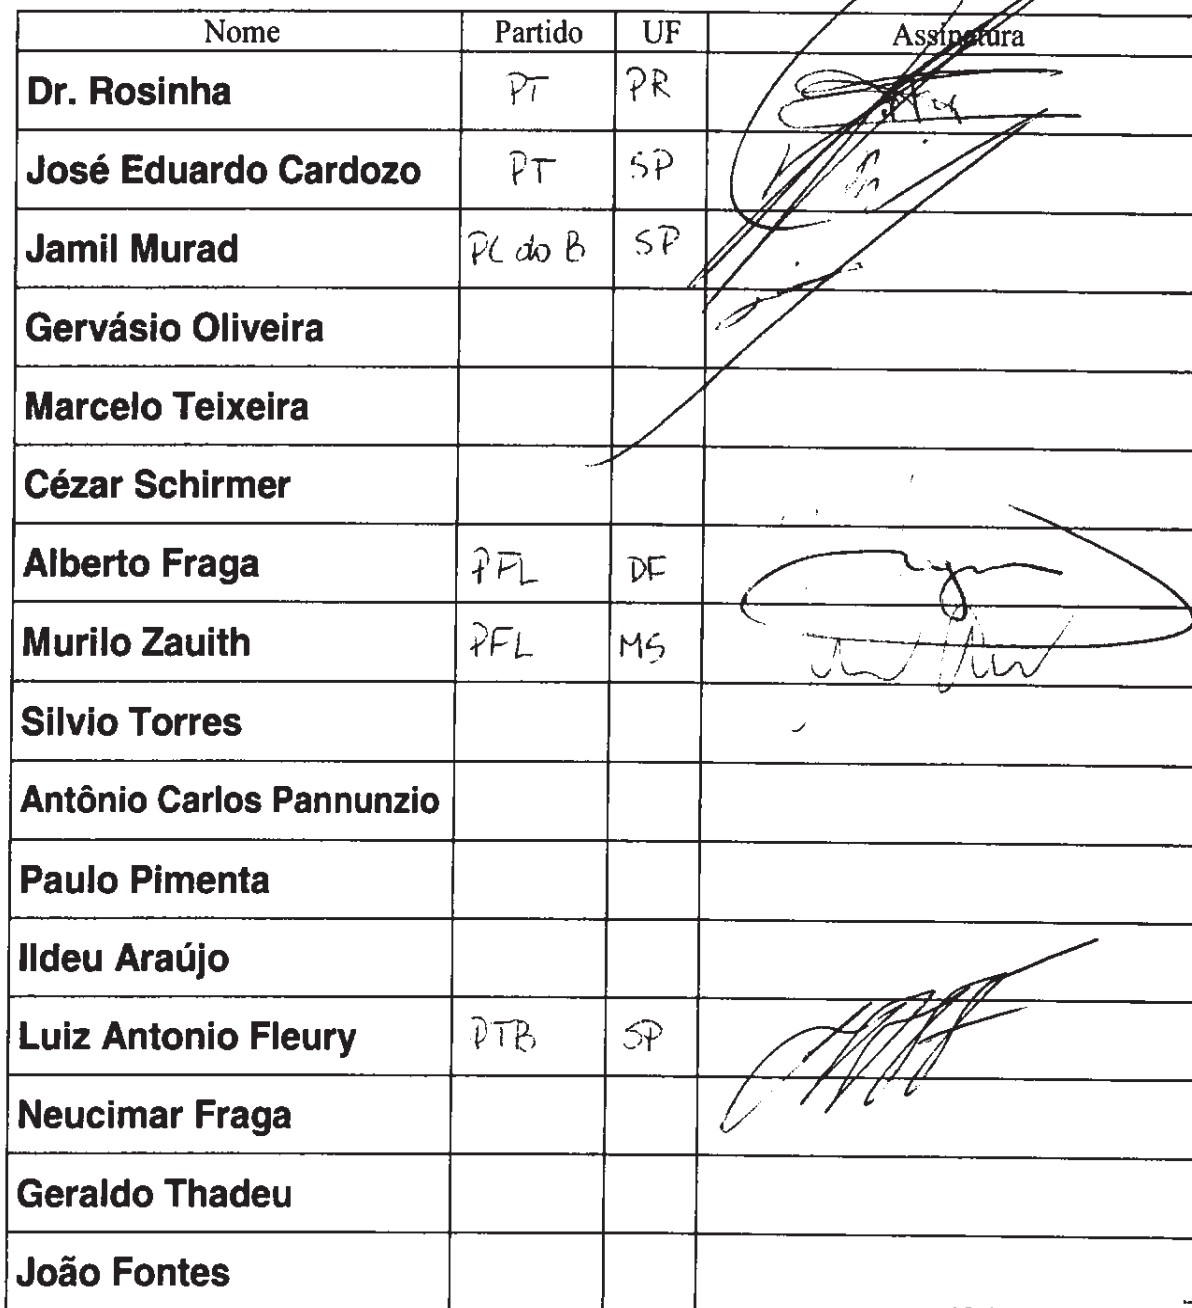 Nome Partido UF Assinatura
Dr. Rosinha PT PR
José Eduardo Cardozo PT SP
Jamil Murad PC do B SP
Gervásio Oliveira
Marcelo Teixeira
Cézar Schirmer
Alberto Fraga PFL DF
Murilo Zauith PFL MS
Silvio Torres
Antônio Carlos Pannunzio
Paulo Pimenta
Ildeu Araújo
Luiz Antonio Fleury PTB SP
Neucimar Fraga
Geraldo Thadeu
João Fontes